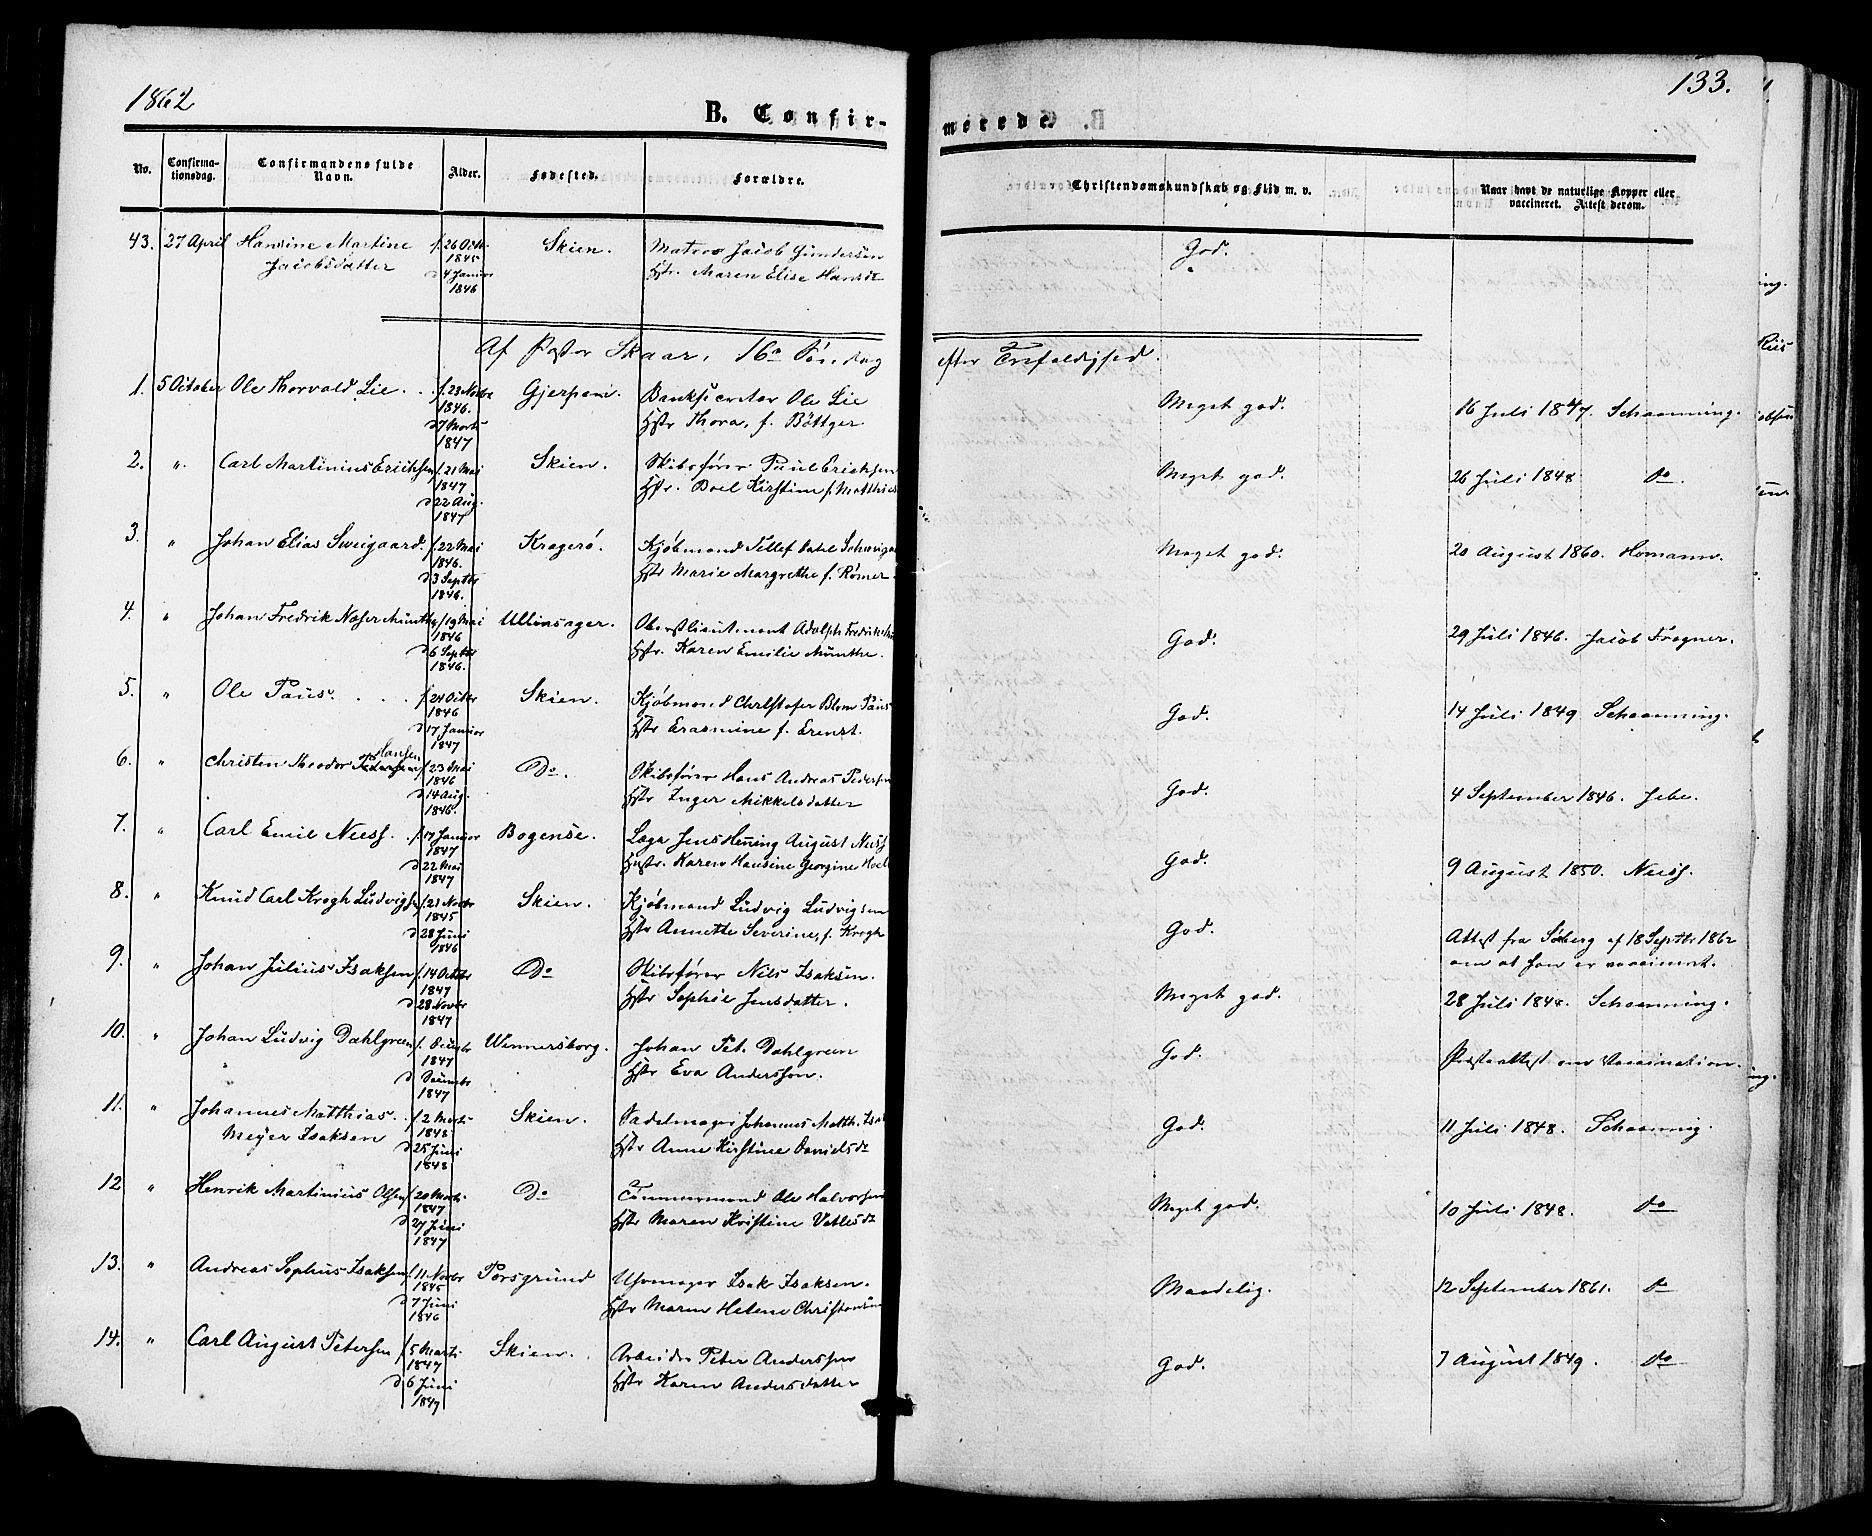 1862
133.
B. Confirmerede
No. Confirmationsdag. Confirmandens fulde Navn. Alder. Fødested. Forældre. Christendomskundskab og Flid m. v. Naar havt de naturlige Kopper eller vaccineret. Attest derom.
43. 27 April Hansine Martine f. 26 Octbr Skien. Matros Jacob Gundersen God.
Jacobsdatter 1845 Hstr. Maren Elise Hansdr
d 4 Januar
1846
Af Pastor Skaar, 16de Søndag efter Trefoldighed.
1. 5 October Ole Thorvald Lie. f. 23 Novbr Gjerpen. Banksecretær Ole Lie Meget god. 16 Juli 1847. Schaanning.
1846. Hstr Thora, f. Bøttger
d 7 Marts
1847
2. " Carl Martinius Erichsen f. 21 Mai Skien. Skibsfører Paul Erichsen Meget god. 26 Juli 1848 do.
1847 Hstr. Boel Kirstine f. Matthis
d 22 Aug.
1847
3. " Johan Elias Sweigaard. f. 22 Mai Kragerø. Kjøbmand Tellef Dahl Schweiga Meget god. 20 August 1860. Homann.
1846. Hstr Marie Margrethe f. Rømer.
d 3 Septbr
1846.
4. " Johan Fredrik Naser Munthe f. 19 Mai Ullinsager. Oberstlieutenant Adolph Fredrik Mu God. 29 Juli 1846. Jacob Frogner.
1846 Hstr. Karen Emilie Munthe.
d 6 Septbr
1846.
5. " Ole Paus. f. 24 Octbr Skien. Kjøbmand Christofer Blom Paus God. 14 Juli 1849 Schaanning.
1846 Hstr Erasmine f. Ernst.
d 17 Januar
1847
6. " Christen Theodor Hansen f. 23 Mai Do. Skibsfører Hans Andreas Pedersen God. 4 September 1846. Jebe.
1846 Hstr Inger Mikkelsdatter
d 14 Aug.
1846.
7. " Carl Emil Niess. f. 17 Januar Bogense. Læge Jens Hening August Niess God. 9 August 1850. Niess.
1847 Hustr. Karen Hansine Georgine Hoel
d 22 Mai
1847
8. " Knud Carl Krogh Ludvigsen f. 21 Novbr Skien. Kjøbmand Ludvig Ludvigsen God. Attest fra Søberg af 18 Septbr 1862
1845 Hstr Annette Severine, f. Krogh om at han er vaccineret.
d 28 Juni
1846
9. " Johan Julius Isaksen f. 14 Octbr Do Skibsfører Nils Isaksen. Meget god. 28 Juli 1848. Schaanning.
1847 Hstr Sophie Jensdatter.
d 28 Novbr
1847
10. " Johan Ludvig Dahlgreen f. Decmbr Wennersborg. Johan Pet. Dahlgreen God. Præsteattest om Vaccination.
1847 Hstr Eva Andersson.
d Decmbr
1847
11. " Johannes Matthias f. 2 Marts Skien. Sadelmager Johannes Matth. Isak God. 11 Juli 1848. Schaanning.
Meyer Isaksen 1848 Hstr Anne Kirstine Danielsdr
d 25 Juni
1848
12 " Henrik Martinius Olsen f. 20 Marts Do Tømmermand Ole Halvorsen Meget god. 10 Juli 1848. do
1847 Hstr Maren Kristine Vetlesdr
d 27 Juni
1847
13. " Andreas Sophus Isaksen f. 11 Novbr Porsgrund Uhrmager Isak Isaksen. Maadelig. 12 September 1861. do
1845 Hstr Maren Helene Christensen
d 7 Juni
1846
14. " Carl August Petersen f. 5 Marts Skien. Arbeider Peter Anderssen God. 7 August 1849. do
1847 Hstr Karen Andersdatter
d 6 Juni
1847